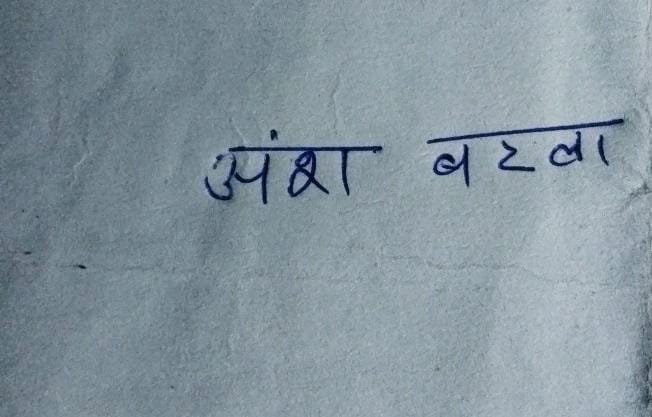 अंश बरला